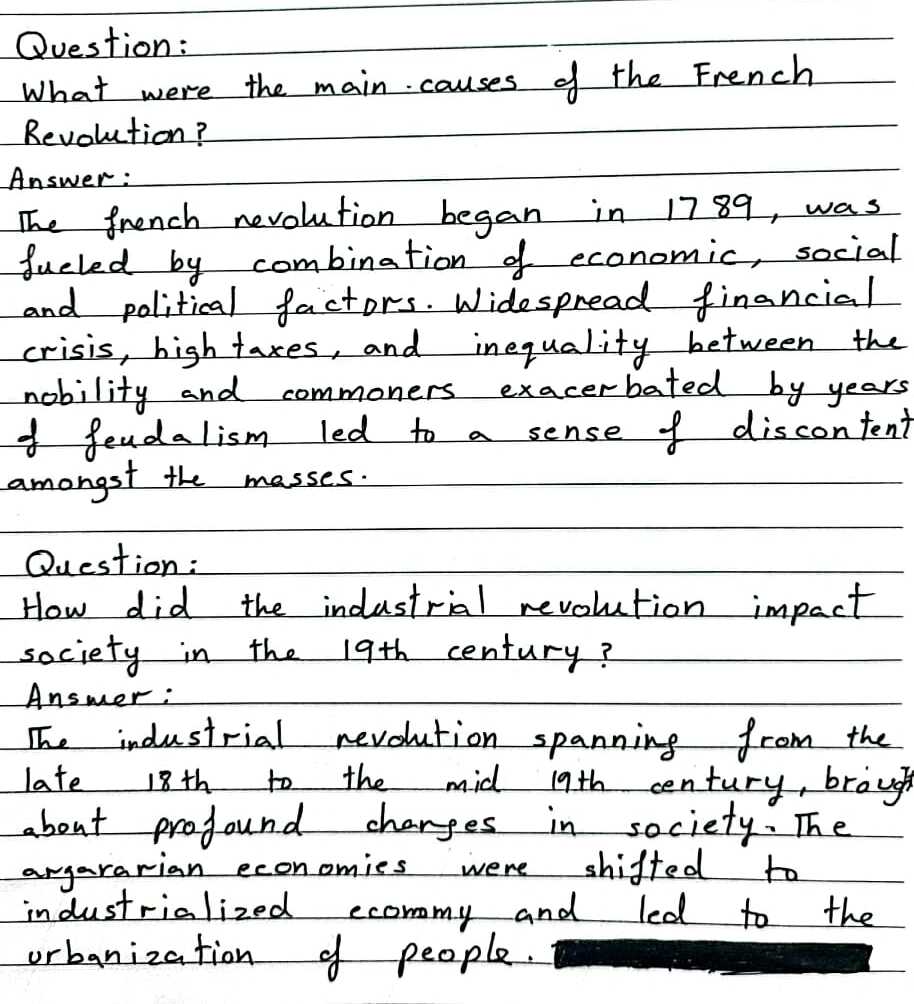 Question:
What were the main causes of the French
Revolution?
Answer:
The french revolution began in 1789, was
fueled by combination of economic, social
and political factors. Widespread financial
crisis, high taxes, and inequality between the
nobility and commoners exacerbated by years
of feudalism led to a sense of discontent
amongst the masses.
Question:
How did the industrial revolution impact
society in the 19th century?
Answer:
The industrial revolution spanning from the
late 18th to the mid 19th century, brought
about profound changes in society. The
argararian economies were shifted to
industrialized economy and led to the
urbanization of people.